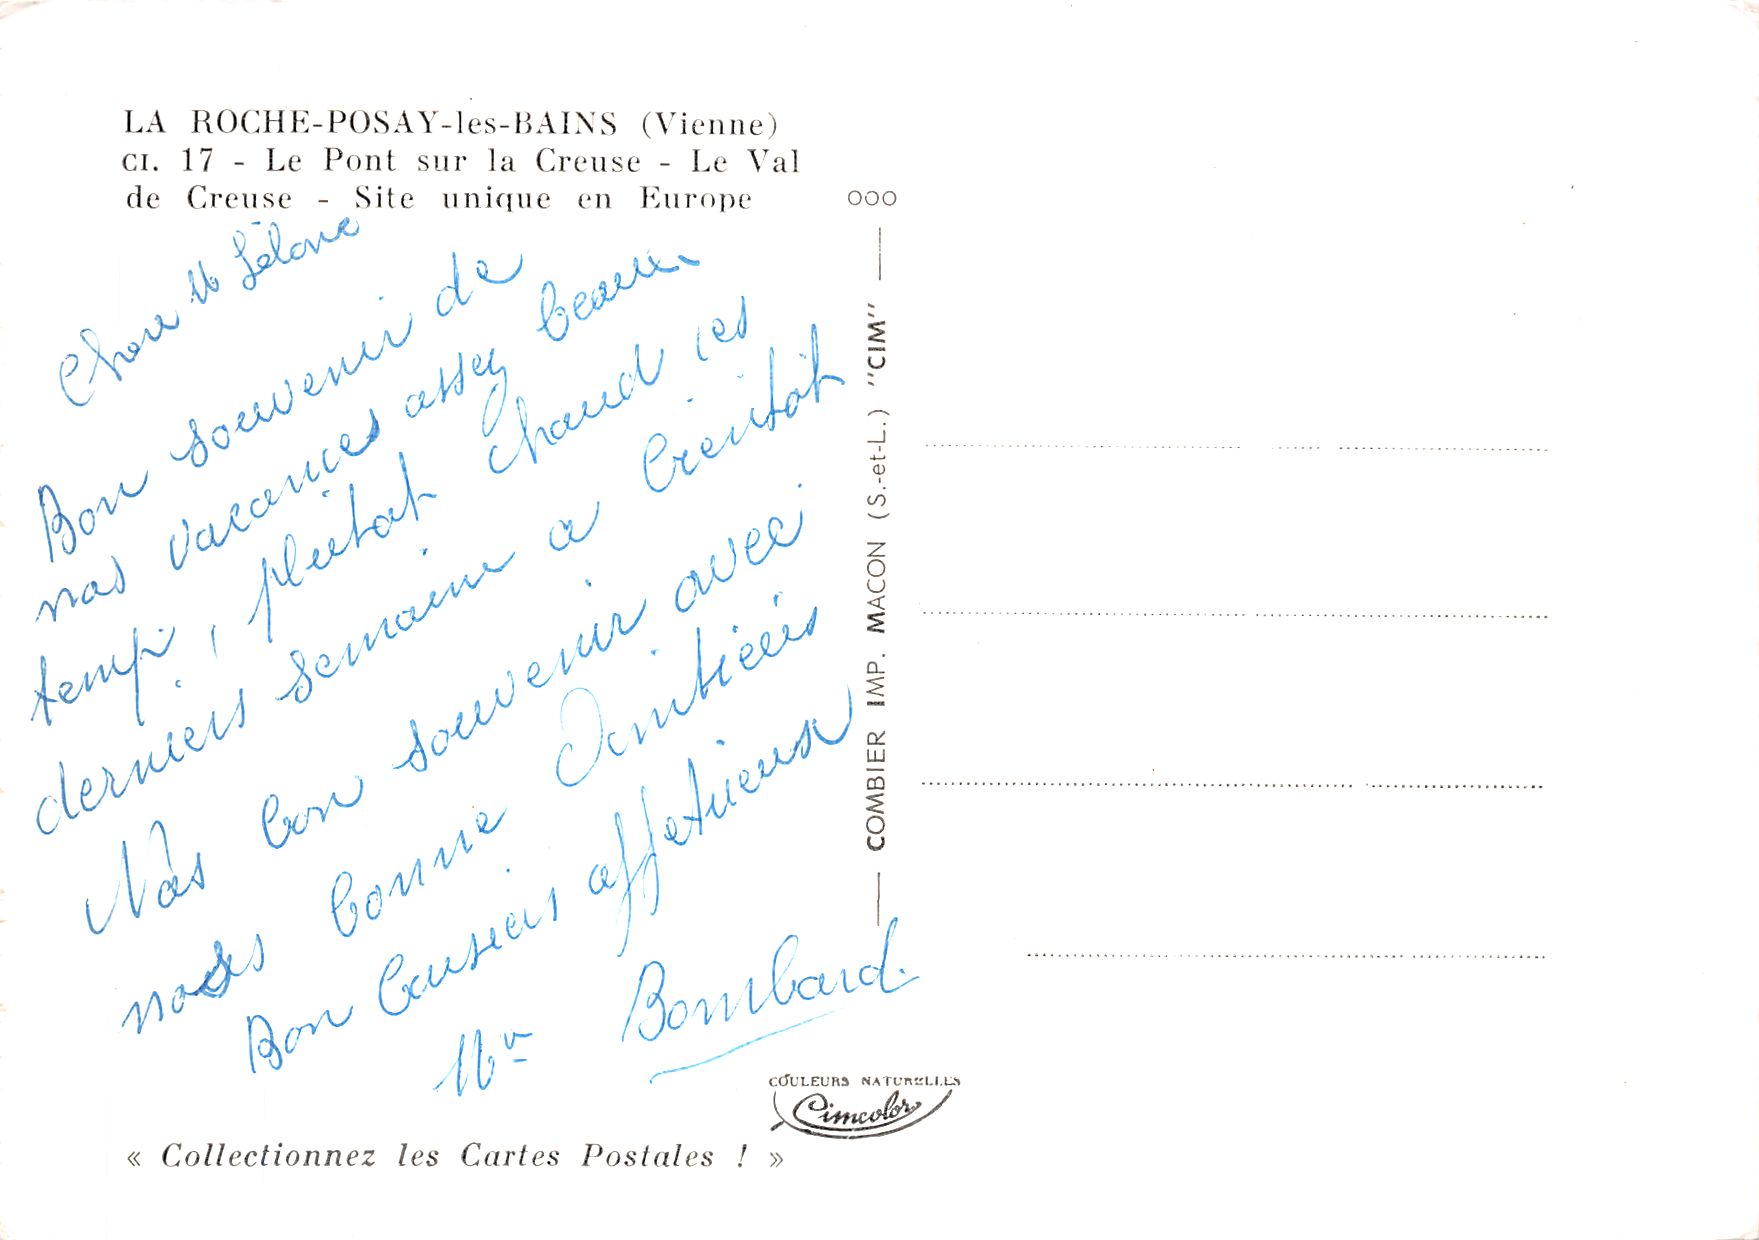 LA ROCHE-POSAY-les-BAINS (Vienne)
CI. 17 - Le Pont sur la Creuse - Le Val
de Creuse - Site unique en Europe
Chere M
Bon souvenir de
nos vacances assez beau
temp, plutot chaud ces
derniers semaine a
Nos bon souvenir avec
nos bonne Amitiées
Bon baisers affetueux
Bombard.
COMBIER IMP. MACON (S.-et-L.) "CIM"
COULEURS NATURELLES
Cimcolor
« Collectionnez les Cartes Postales ! »